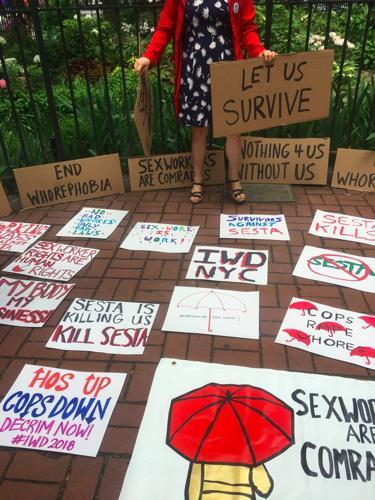 LET US
SURVIVE
END
WHOREPHOBIA
SEXWORKERS
ARE COMRADES
NOTHING 4 US
WITHOUT US
WHOR
NO
BAD
WHORES
ONLY
BAD
LAWS
SEX WORK
IS
WORK!
SURVIVORS
AGAINST
SESTA
SESTA
KILLS
SEX WORKER
RIGHTS ARE
HUMAN
RIGHTS
IWD
NYC
SESTA
MY BODY
MY
BUSINESS
SESTA IS
KILLING US
KILL SESTA
COPS
RAPE
WHORE
HOS UP
COPS DOWN
DECRIM NOW!
#IWD 2018
SEXWO
ARE
COMRA